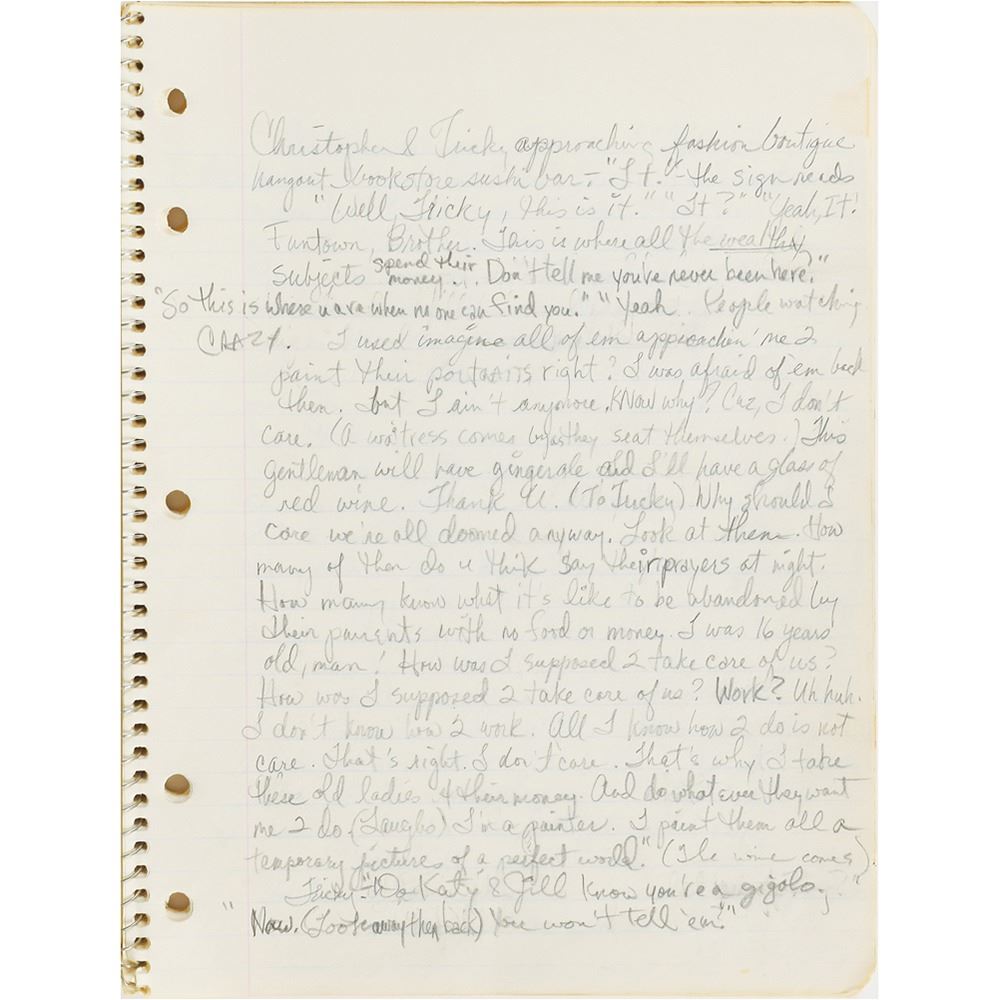 Christopher & Tricky approaching fashion boutique
hangout bookstore sushi bar - "It." - the sign reads
"Well, Tricky, this is it." "It?" "Yeah, It!
Funtown, Brother. This is where all the wealthy
subjects spend their money... Don't tell me you've never been here."
"So this is where u are when no one can find you." "Yeah.. People watching
CRAZY. I used imagine all of em approachin' me 2
paint their portraits right? I was afraid of 'em back
then. but I ain't anymore. Know why? Cuz, I don't
care. (A waitress comes by as they seat themselves.) This
gentleman will have gingerale and I'll have a glass of
red wine. Thank U. (To Tricky) Why should I
care we're all doomed anyway. Look at them. How
many of them do u think say their prayers at night.
How many know what it's like to be abandoned by
their parents with no food or money. I was 16 years
old, man! How was I supposed 2 take care of us?
How was I supposed 2 take care of us? Work? Uh huh.
I don't know how 2 work. All I know how 2 do is not
care. That's right. I don't care. That's why I take
these old ladies & their money. And do whatever they want
me 2 do. (Laughs) I'm a painter. I paint them all a
temporary pictures of a perfect world." (The wine comes).
Tricky: "Do Katy & Jill know you're a gigolo?"
" Naw. (Looks away then back) You won't tell 'em?"